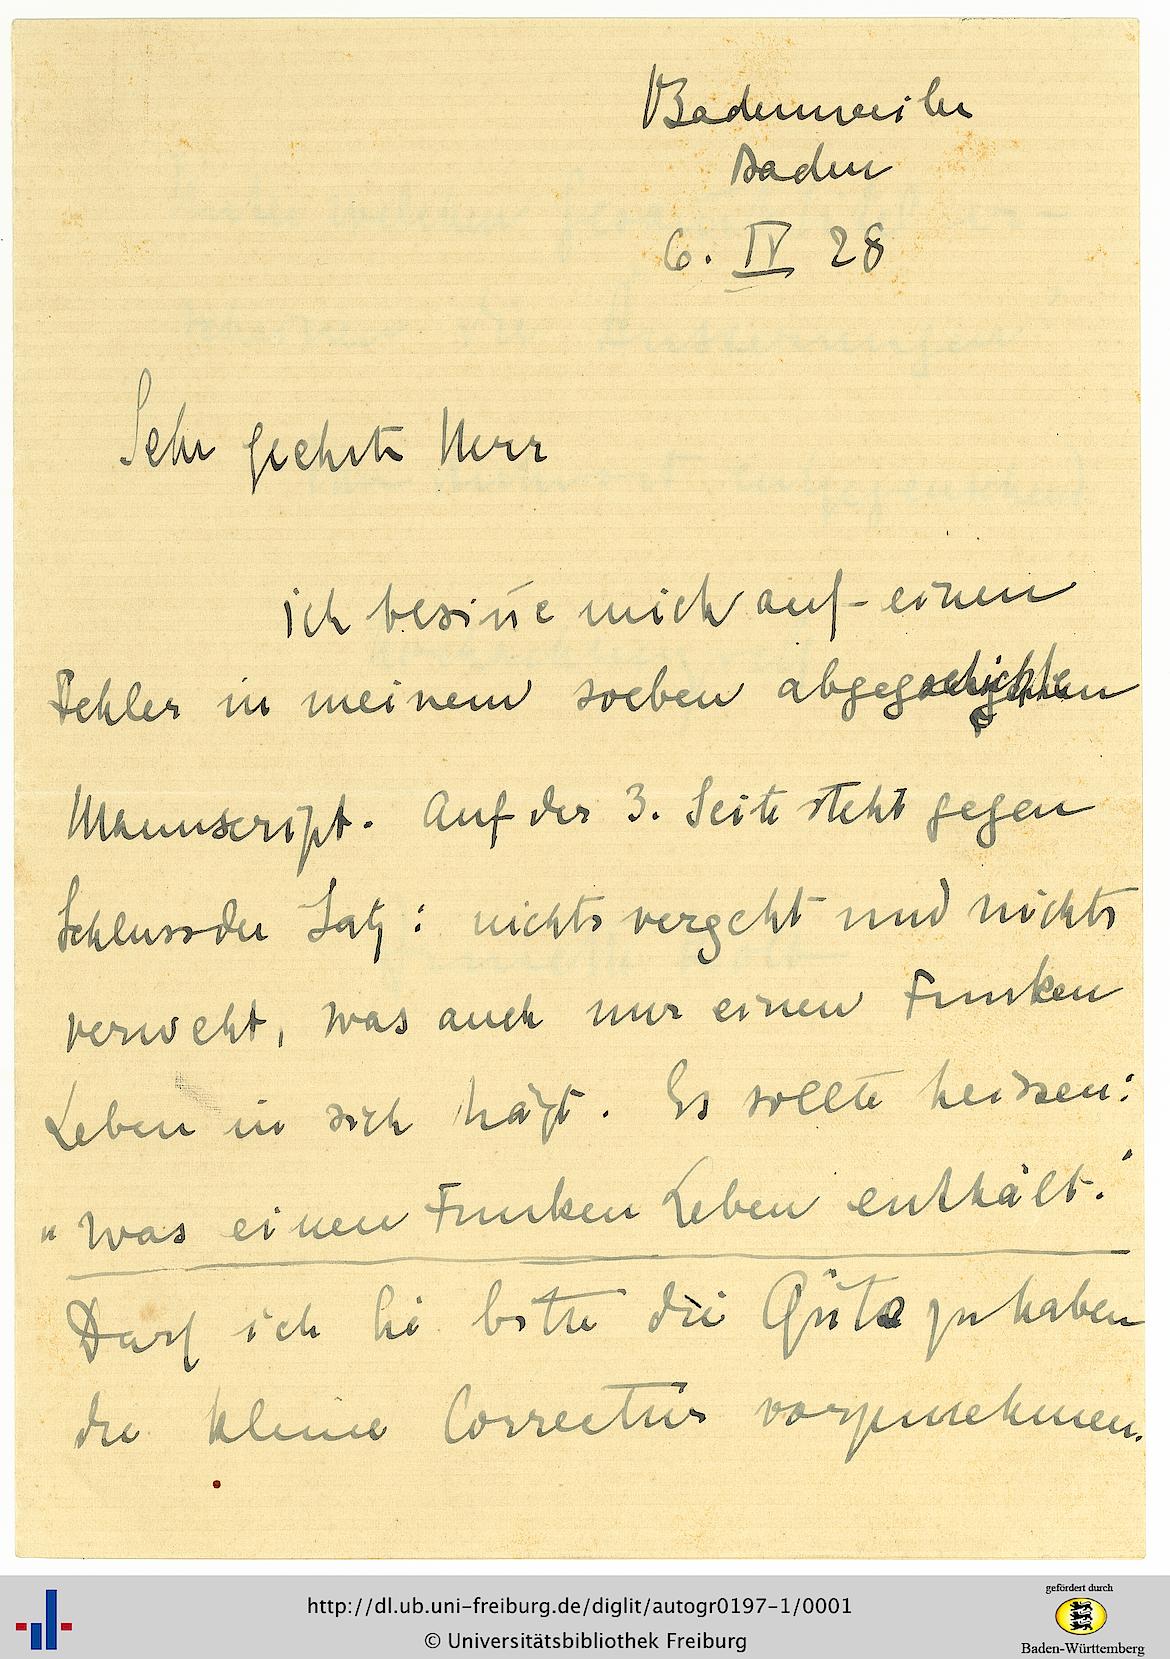 Badenweiler
Baden
6. IV 28
Sehr geehrte Herr
ich besinne mich auf einen
Fehler in meinem soeben abgeschickten
Manuscript. Auf der 3. Seite steht gegen
Schluss der Satz: nichts vergeht und nichts
verweht, was auch nur einen Funken
Leben in sich hält. Es sollte heissen:
"was einen Funken Leben enthält."
Darf ich Sie bitte die Güte zu haben
die kleine Correctur vorzunehmen.
http://dl.ub.uni-freiburg.de/diglit/autogr0197-1/0001
© Universitätsbibliothek Freiburg
gefördert durch
Baden-Württemberg